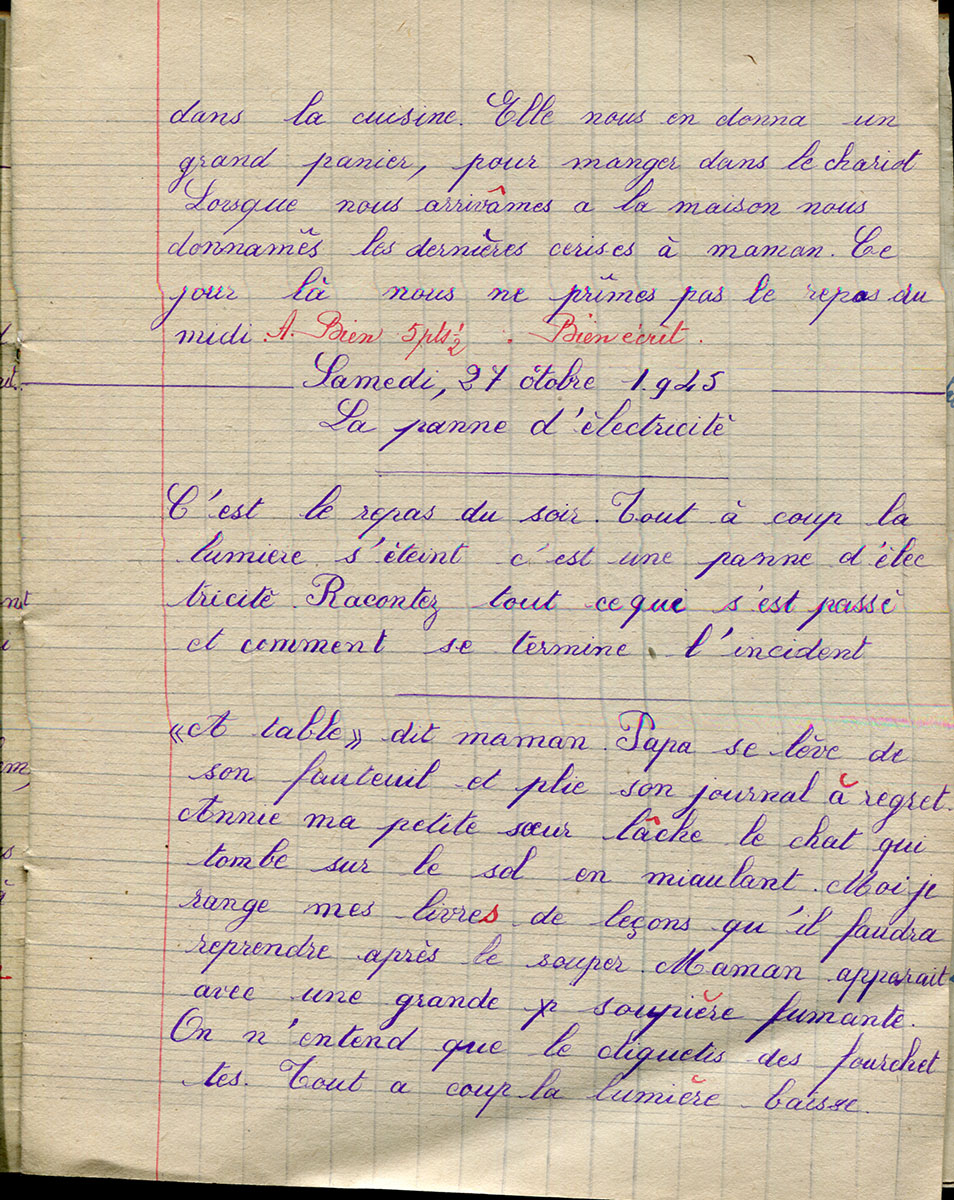 dans la cuisine. Elle nous en donna un
grand panier, pour manger dans le chariot
Lorsque nous arrivâmes a la maison nous
donnamês les dernières cerises à maman. Ce
jour là nous ne prîmes pas le repas du
midi. A. Bien 5 pts ½ . Bien écrit.
Samedi, 27 otobre 1.945
La panne d'électricité
C'est le repas du soir. Tout à coup la
lumiere s'éteint c'est une panne d'élec
tricité. Racontez tout ce qui s'est passé
et comment se termine l'incident
«A table» dit maman. Papa se lève de
son fauteuil et plie son journal à regret.
Annie ma petite sœur lâche le chat qui
tombe sur le sol en miaulant. Moi je
range mes livres de leçons qu'il faudra
reprendre après le souper. Maman apparait
avec une grande soupière fumante.
On n'entend que le cliquetis des fourchet
tes. Tout a coup la lumière baisse.